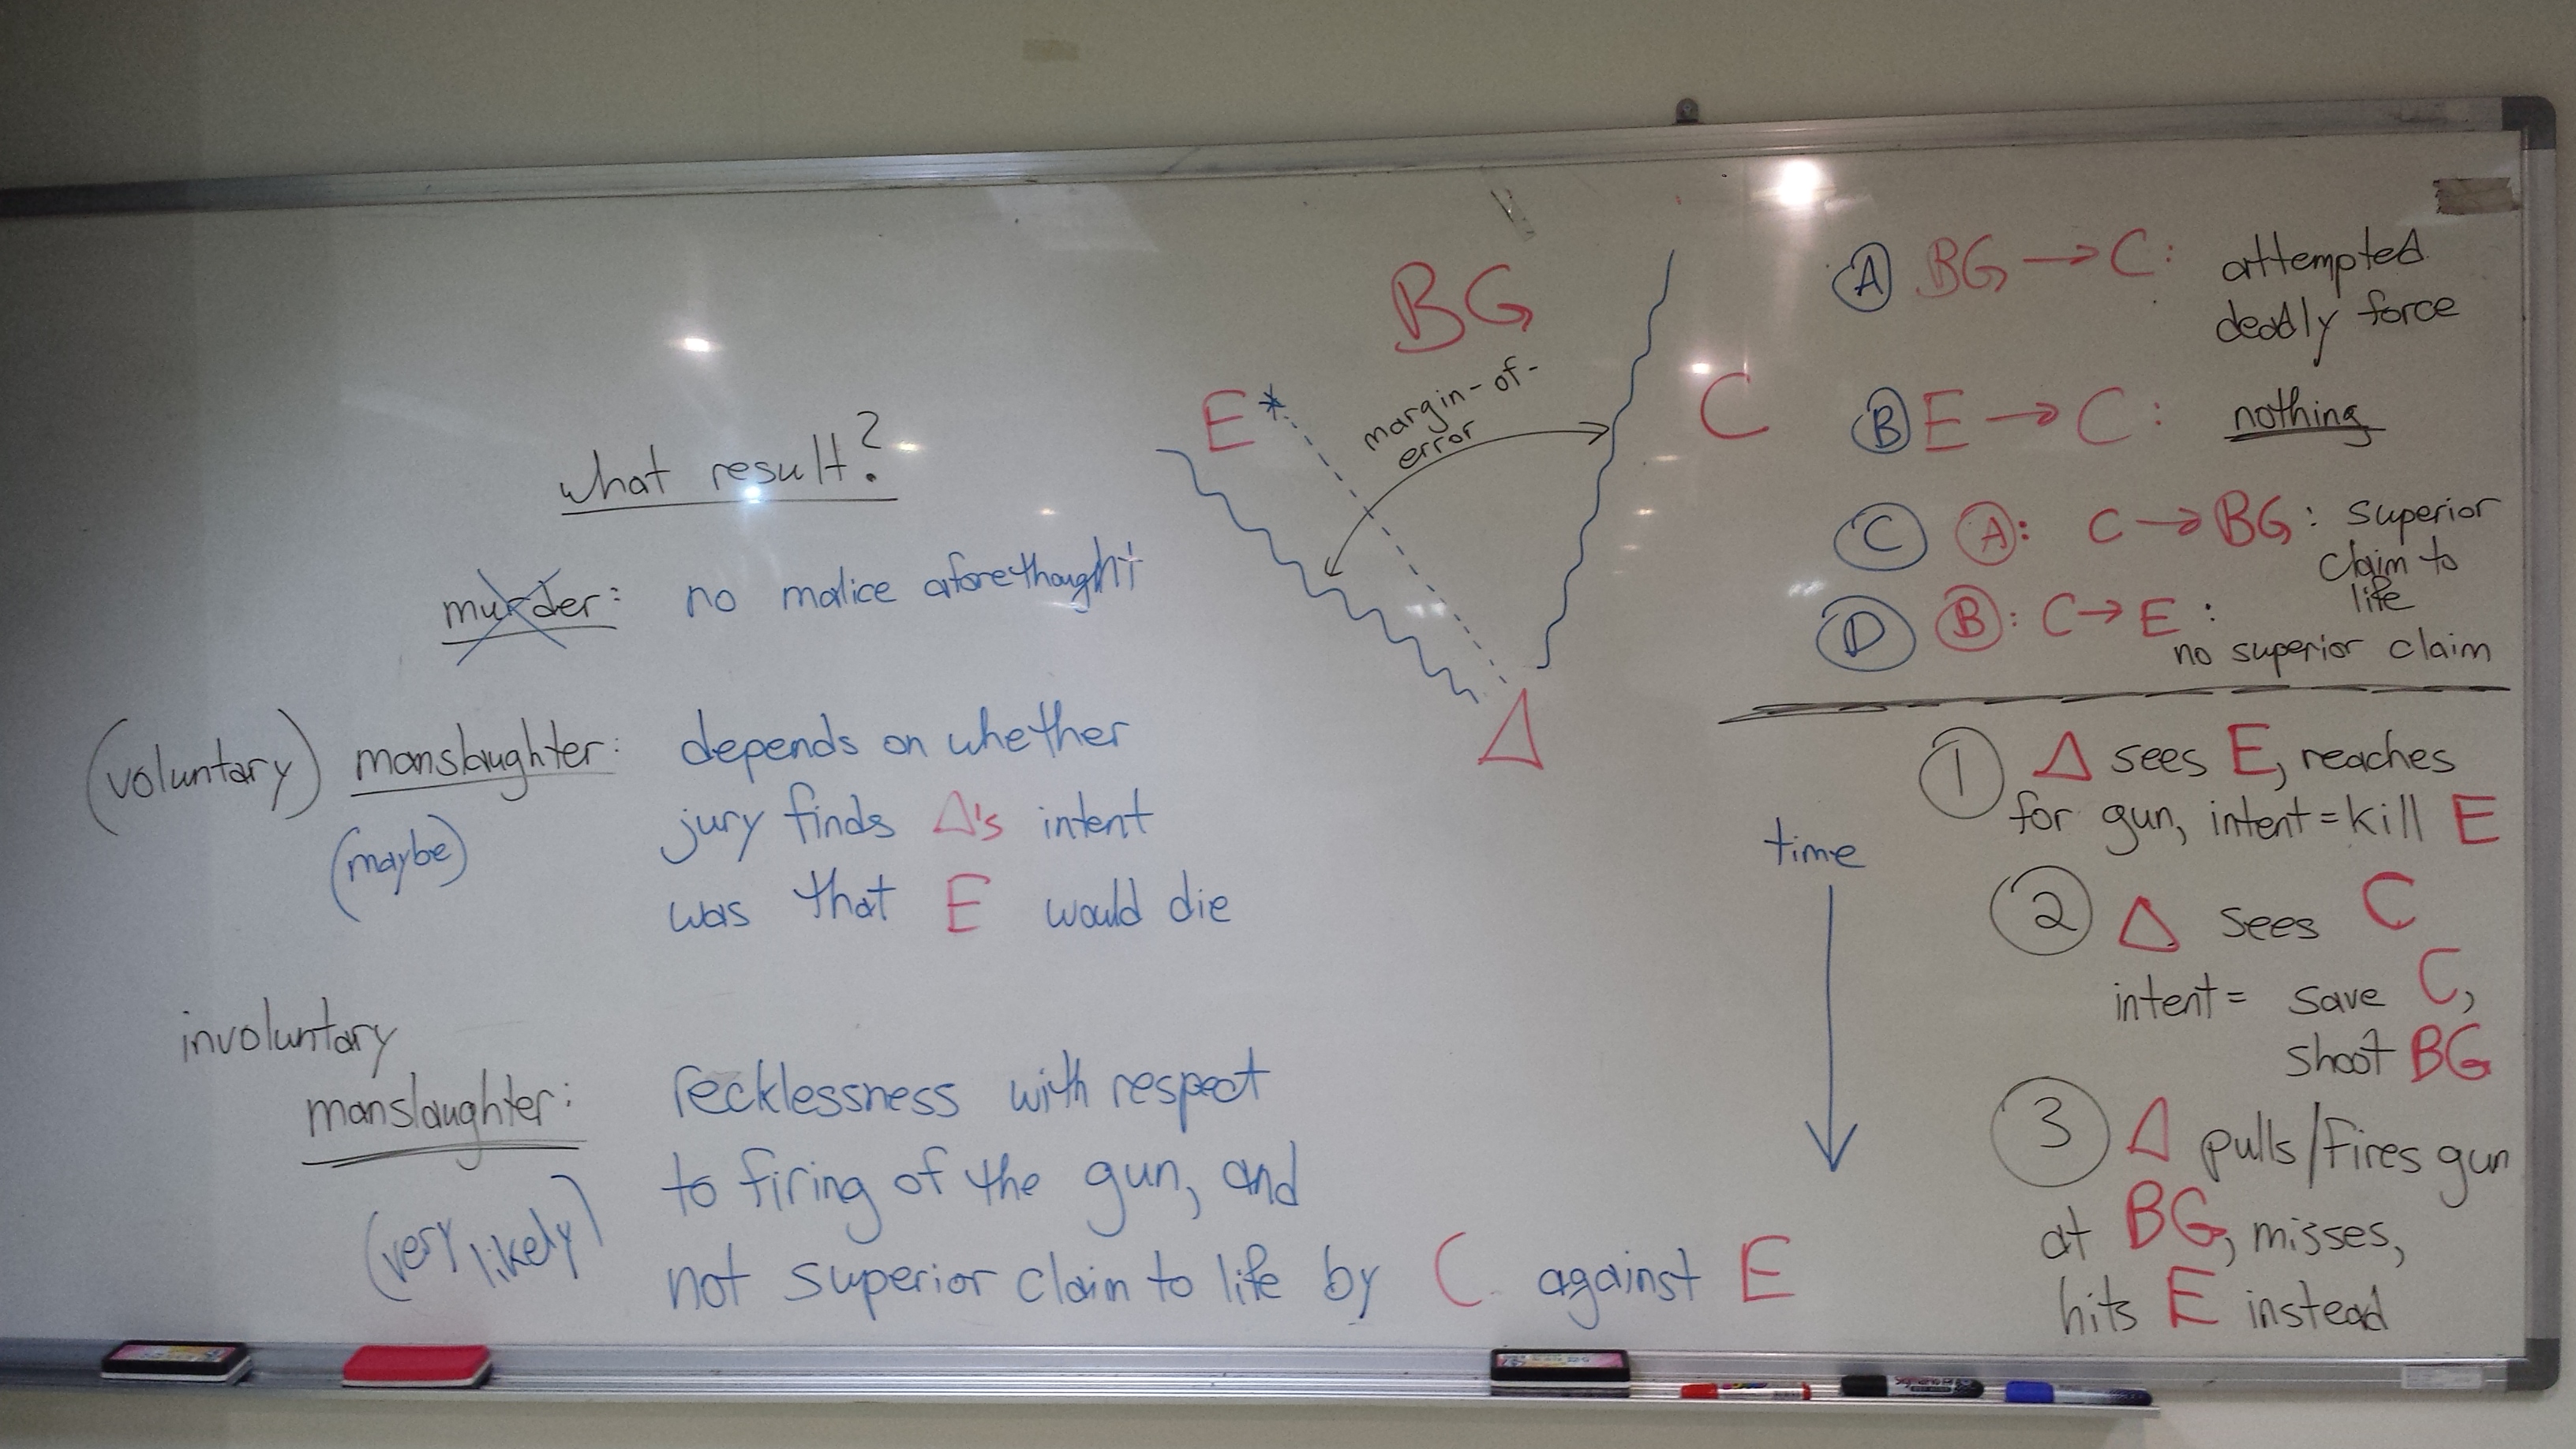 what result?
murder: no malice aforethought
(voluntary) manslaughter: depends on whether
(maybe) jury finds Δ's intent
was that E would die
involuntary
manslaughter: recklessness with respect
(very likely) to firing of the gun, and
not superior claim to life by C against E
BG
E*
margin-of-
error
C
Δ
Ⓐ BG → C: attempted
deadly force
Ⓑ E → C: nothing
Ⓒ Ⓐ: C → BG: superior
claim to
life
Ⓓ Ⓑ: C → E:
no superior claim
time
① Δ sees E, reaches
for gun, intent = kill E
② Δ sees C
intent = save C,
shoot BG
③ Δ pulls/fires gun
at BG, misses,
hits E instead